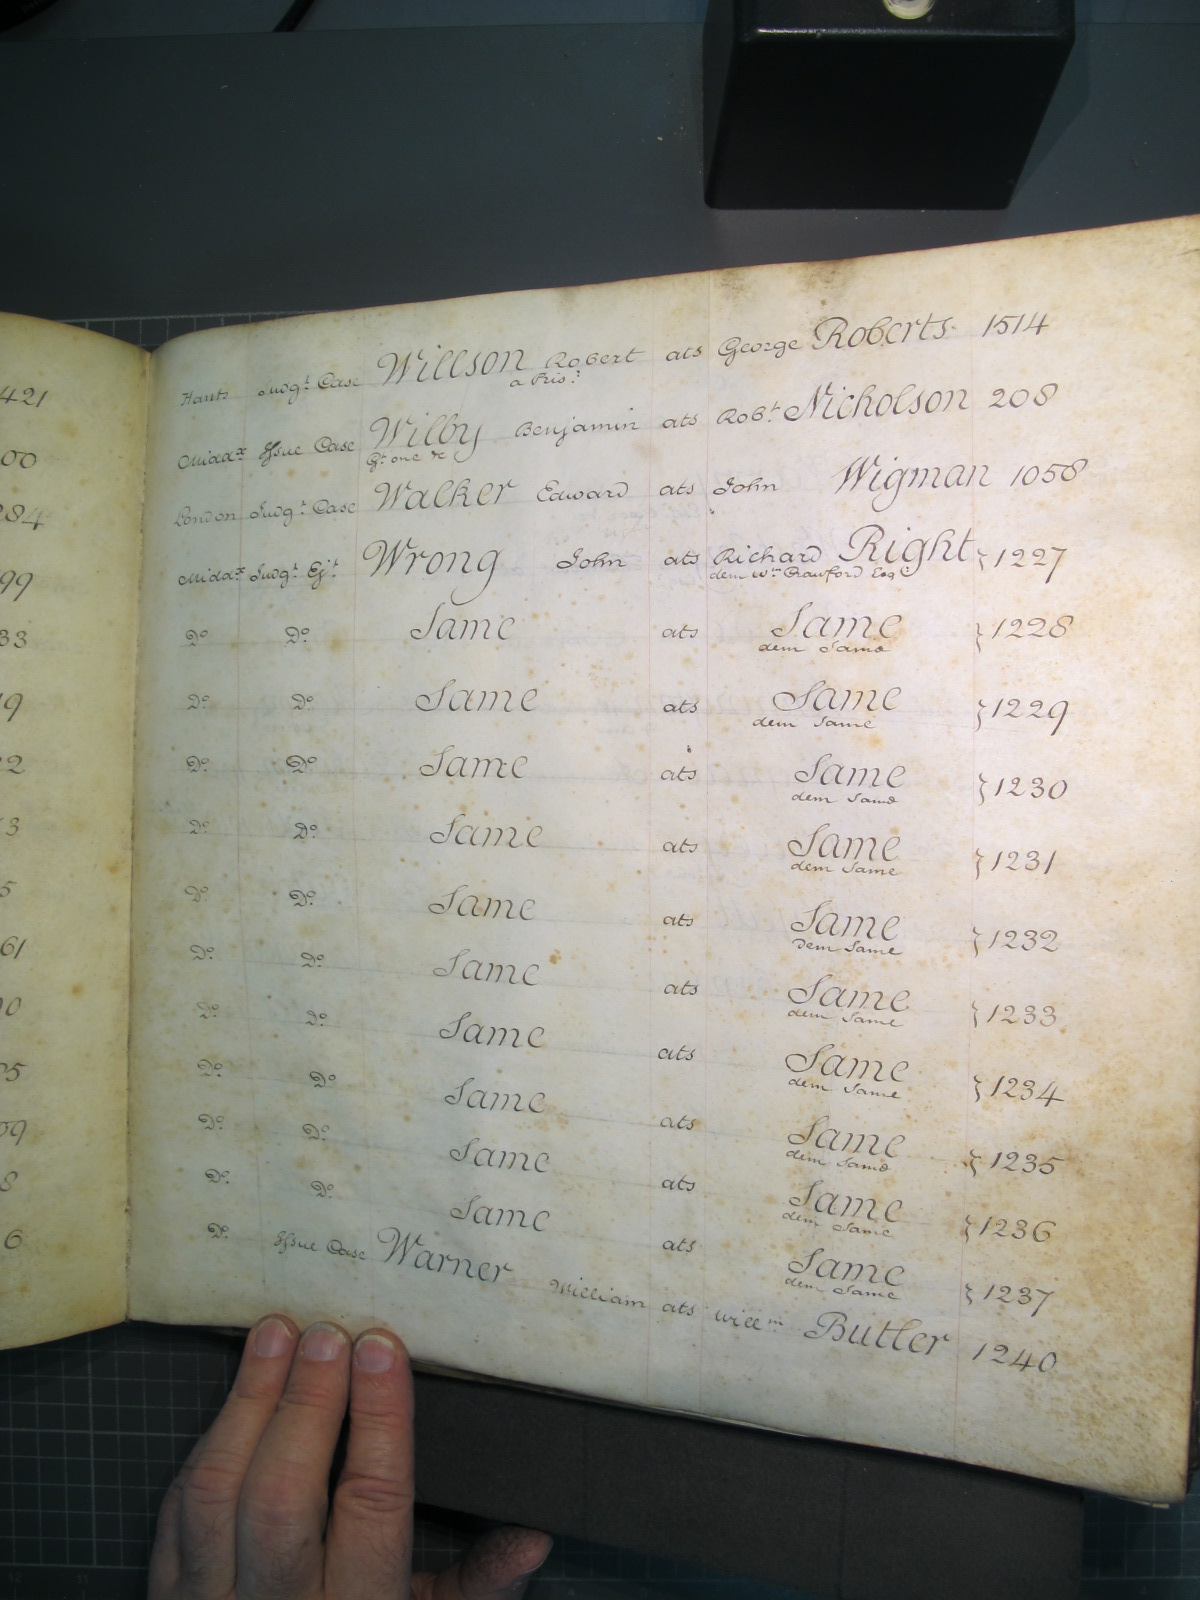 421
00
284
99
33
19
2
3
5
61
10
35
09
8
6
Hants Judgt. Case Willson Robert ats George Roberts 1514
a Pris.r
Middx. Issue Case Wilby Benjamin ats Robt. Nicholson 208
Gt. one &c
London Judgt. Case Walker Edward ats John Wigman 1058
Middx. Judgt. Ejt. Wrong John ats Richard Right } 1227
dem Wm. Crawford Esqe
Do. Do. Same ats Same } 1228
dem Same
Do. Do. Same ats Same } 1229
dem Same
Do. Do. Same ats Same } 1230
dem Same
Do. Do. Same ats Same } 1231
dem Same
Do. Do. Same ats Same } 1232
Dem Same
Do. Do. Same ats Same } 1233
dem Same
Do. Do. Same ats Same } 1234
dem Same
Do. Do. Same ats Same } 1235
dem Same
Do. Do. Same ats Same } 1236
dem Same
Do. Do. Same ats Same } 1237
dem Same
Do. Issue Case Warner William ats Willm. Butler 1240